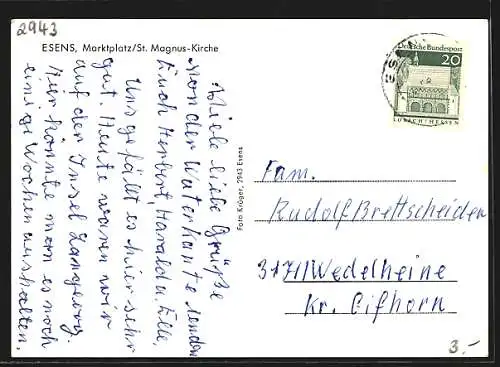 2943
ESENS, Marktplatz/St. Magnus-Kirche
Viele liebe Grüße
von der Waterkante senden
Euch Herbert, Harald u. Elle.
Uns gefällt es hier sehr
gut. Heute waren wir
auf der Insel Langeoog.
Hier könnte man es noch
einige Wochen aushalten.
Foto Krüger, 2943 Esens
Deutsche Bundespost
20
LORSCH/HESSEN
Fam.
Rudolf Brettscheider
3171 Wedelheine
Kr. Gifhorn
3.-